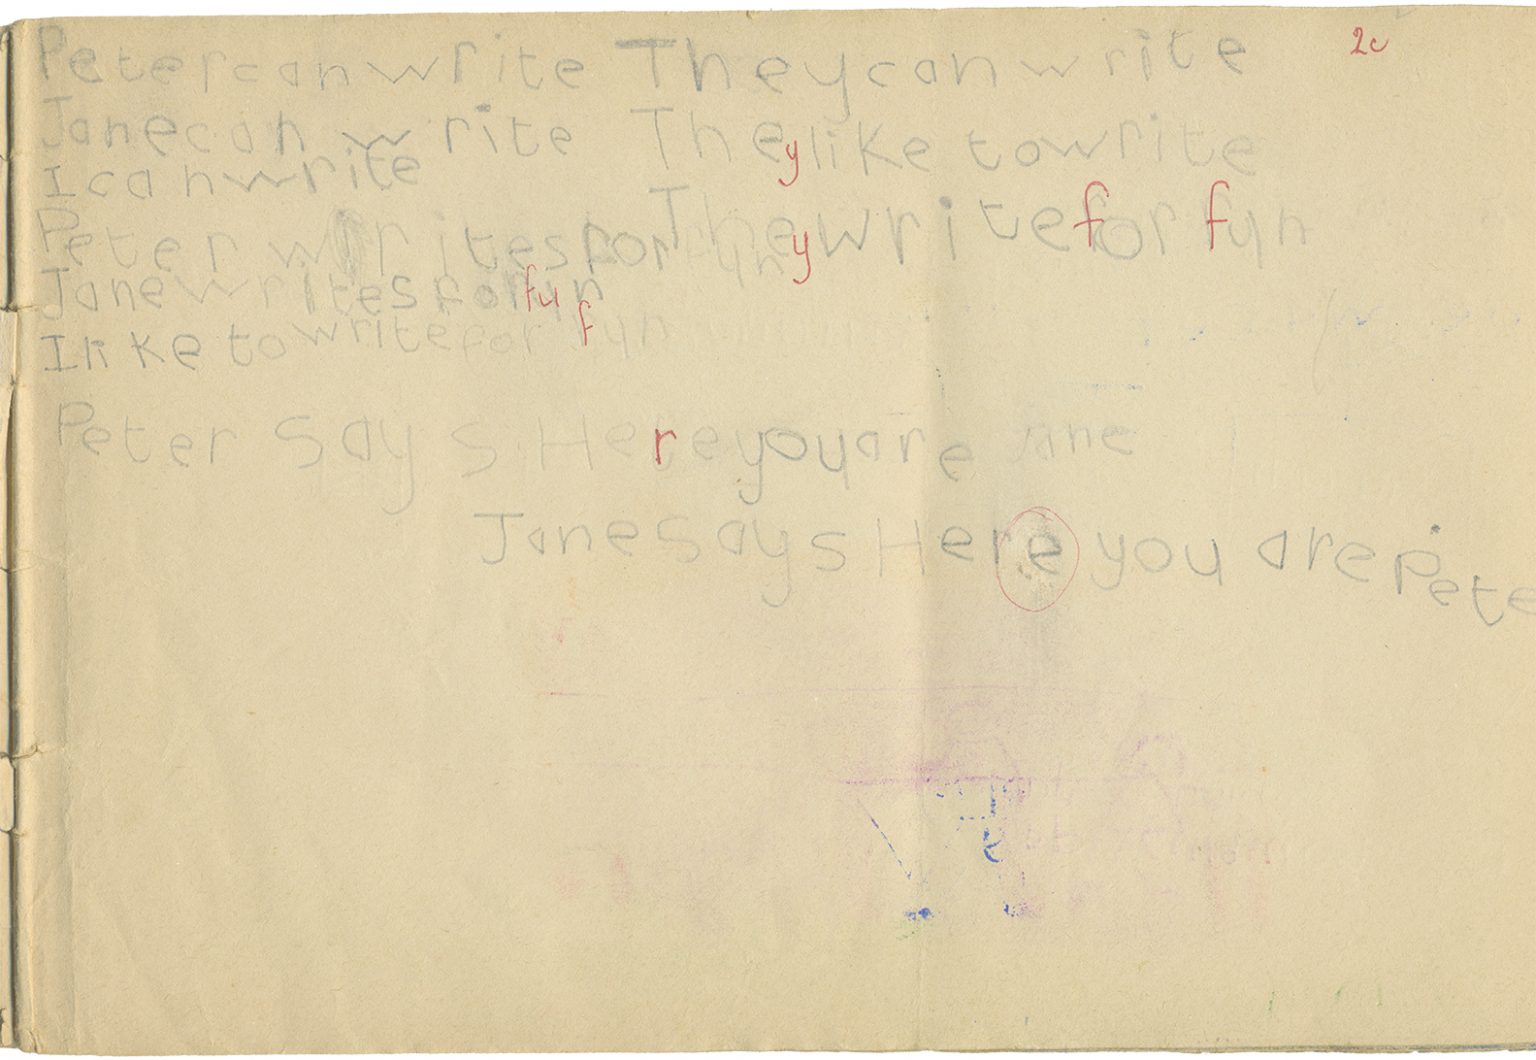 Peter can write They can write 2c
Jane can write They like to write
I can write
They write for fun
Peter writes for fun
Jane writes for fun
I like to write for fun
Peter Says Here you are Jane
Jane Says Here you are Pete